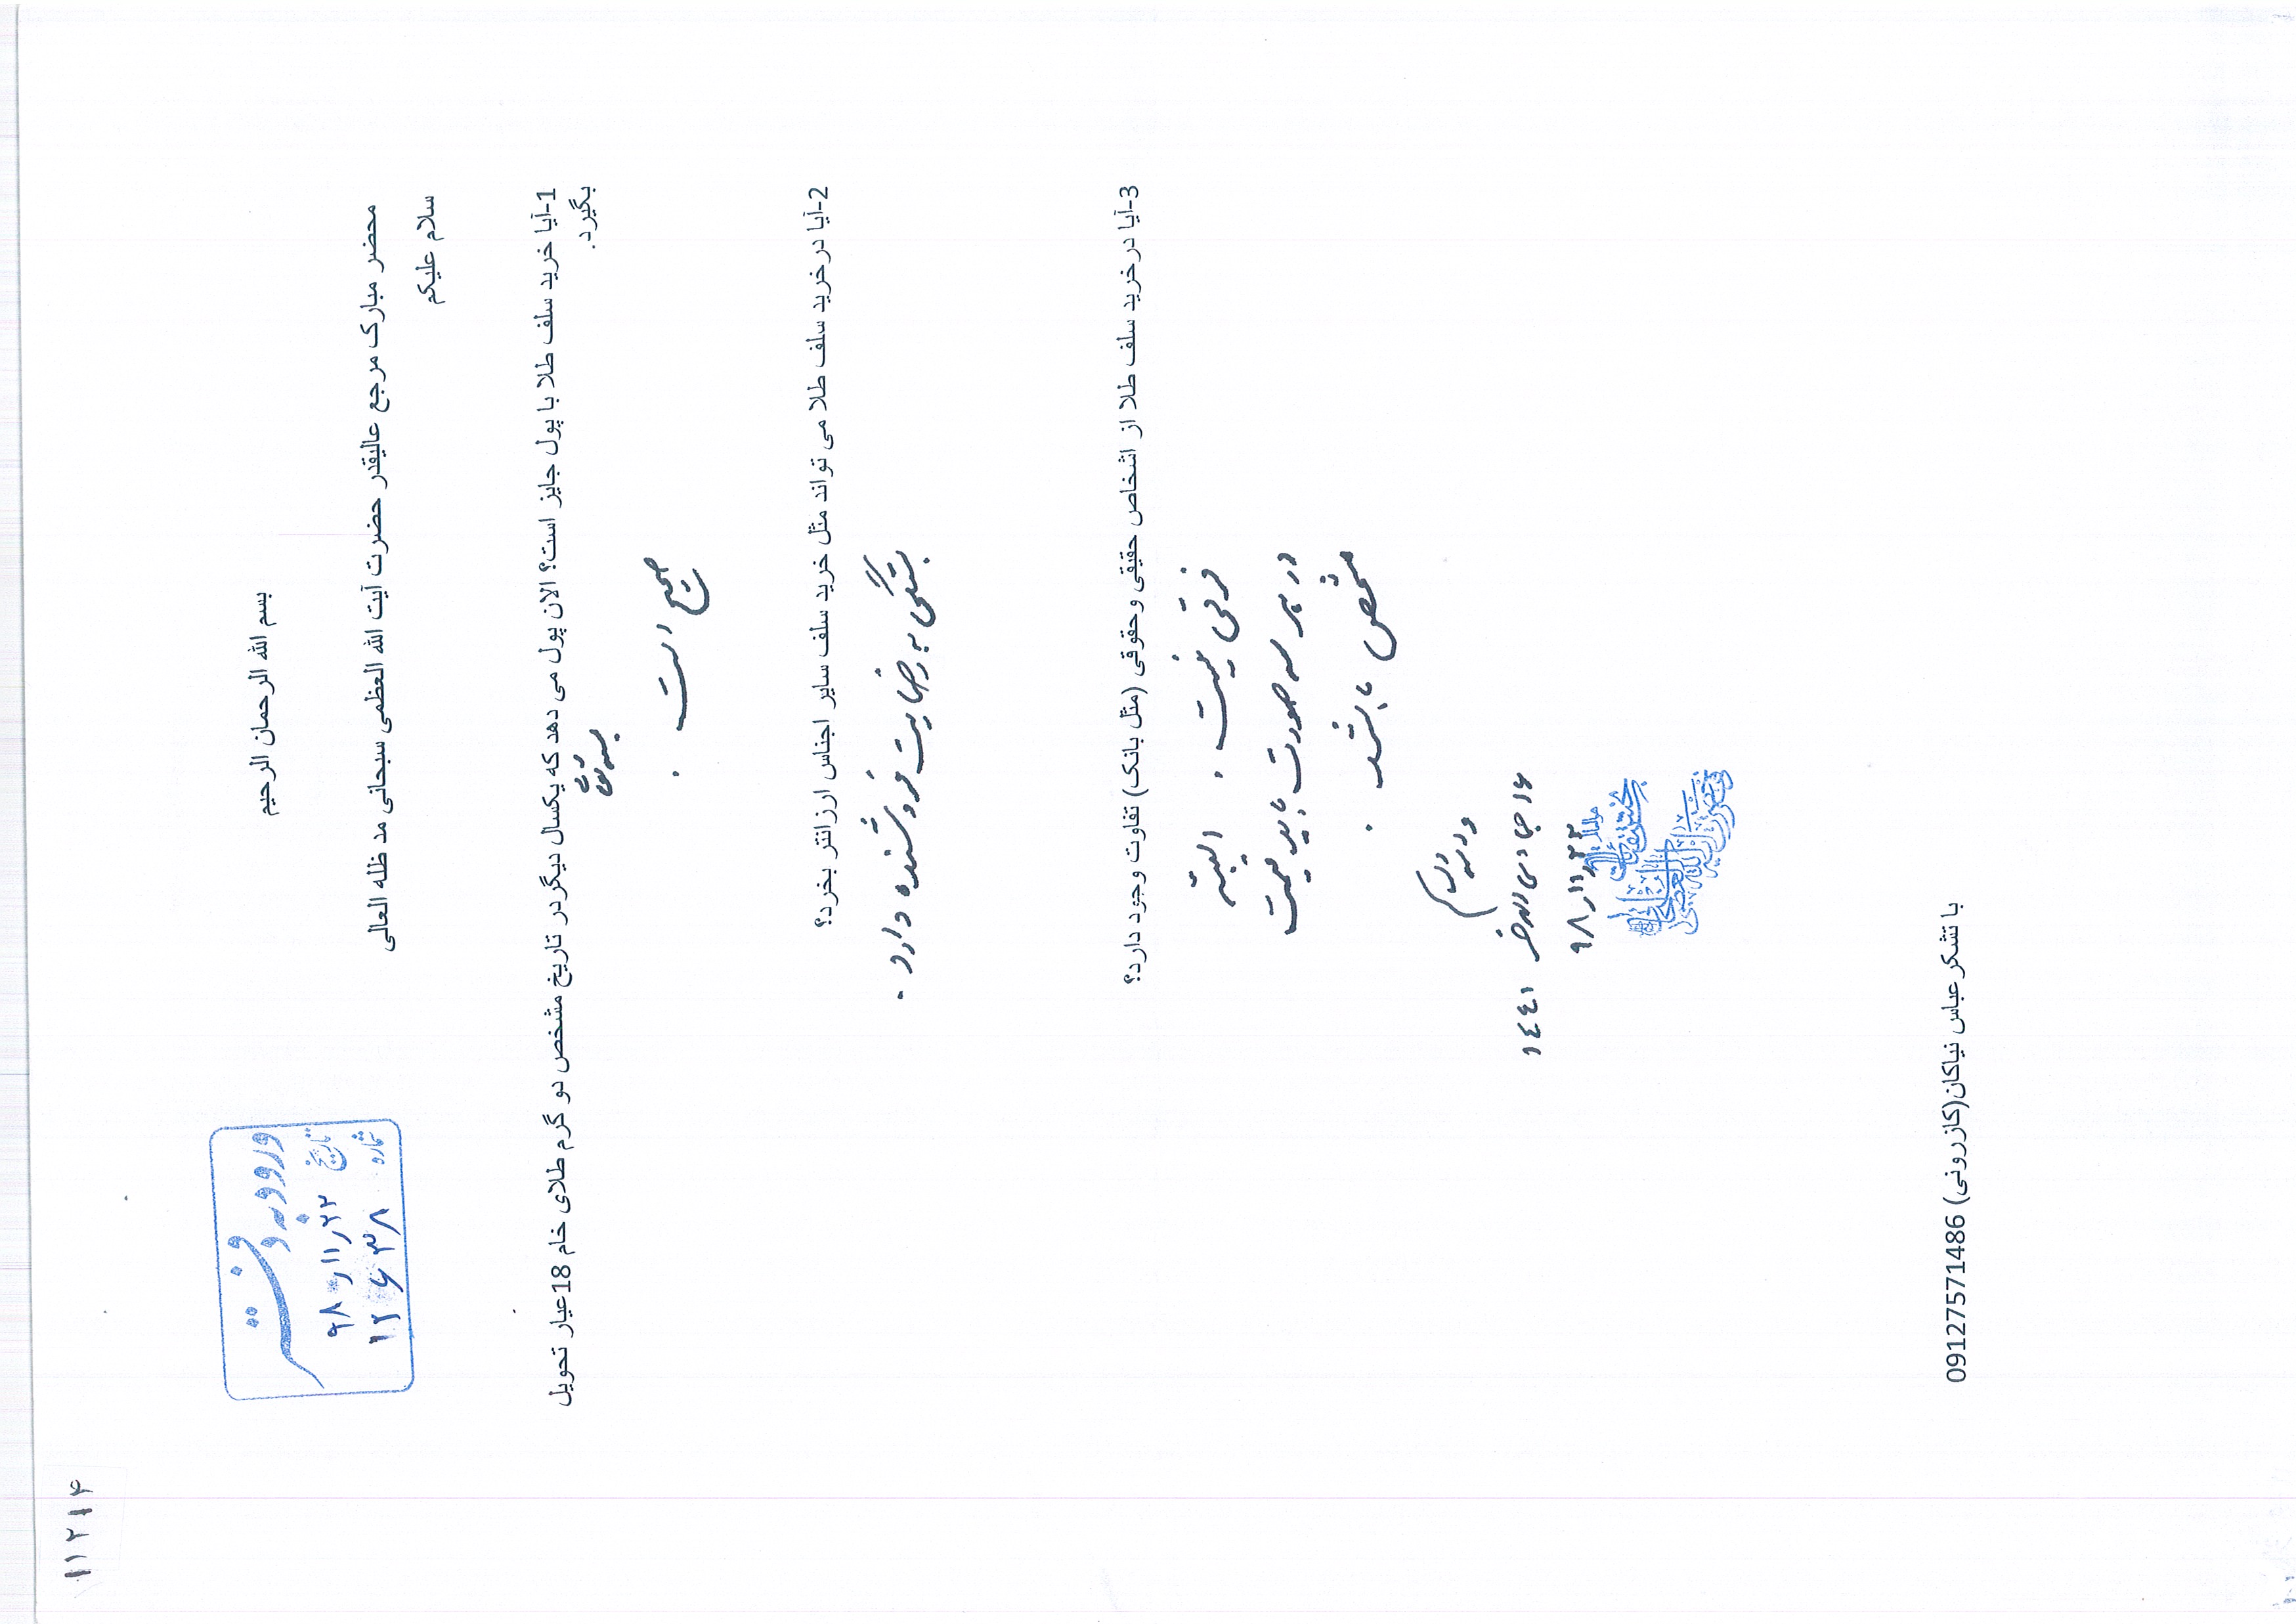 ۱۱۲۱۴
ورود به دفتر
تاریخ ۹۸/۱۱/۲۲
شماره ۱۲۶۳۸
بسم الله الرحمان الرحیم
محضر مبارک مرجع عالیقدر حضرت آیت الله العظمی سبحانی مد ظله العالی
سلام علیکم
1-آیا خرید سلف طلا با پول جایز است؟ الان پول می دهد که یکسال دیگر در تاریخ مشخص دو گرم طلای خام 18عیار تحویل
بگیرد.
بسمه تعالی
صحیح است .
2-آیا در خرید سلف طلا می تواند مثل خرید سلف سایر اجناس ارزانتر بخرد؟
بستگی به رضایت فروشنده دارد .
3-آیا در خرید سلف طلا از اشخاص حقیقی وحقوقی (مثل بانک) تفاوت وجود دارد؟
فرقی نیست . البته
در هر سه صورت باید قیمت
مشخص باشد .
والسلام
۱۶ جمادی الاخر ۱۴۴۱
۹۸/۱۱/۲۲
با تشکر عباس نیاکان(کازرونی) 09127571486